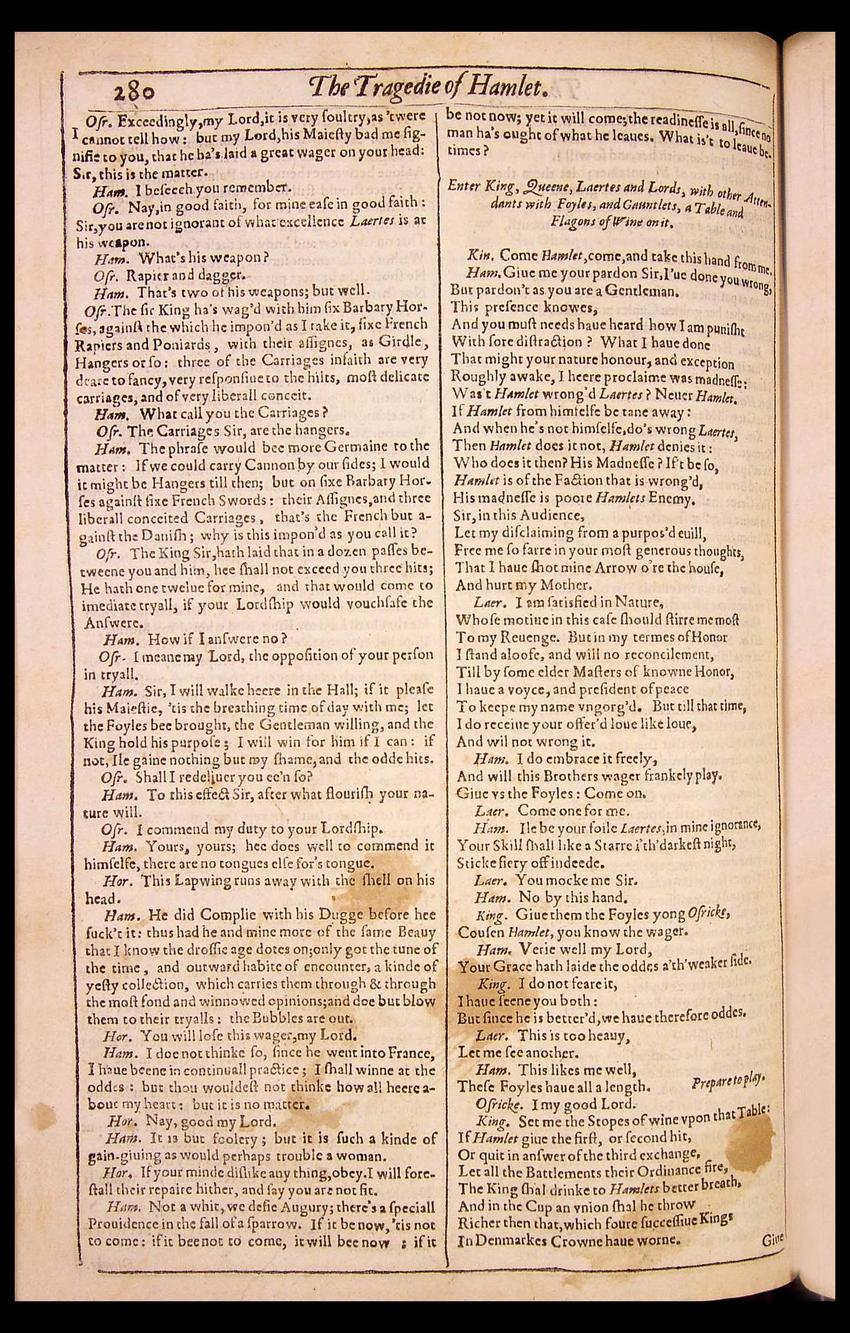 280
The Tragedie of Hamlet.
Oſr. Exceedingly, my Lord, it is very ſoultry, as 'twere
I cannot tell how: but my Lord, his Maieſty bad me ſig-
nifie to you, that he ha's laid a great wager on your head:
Sir, this is the matter.
Ham. I beſeech you remember.
Oſr. Nay, in good faith, for mine eaſe in good faith:
Sir, you are not ignorant of what excellence Laertes is at
his weapon.
Ham. What's his weapon?
Oſr. Rapier and dagger.
Ham. That's two of his weapons; but well.
Oſr. The ſir King ha's wag'd with him ſix Barbary Hor-
ſes, againſt the which he impon'd as I take it, ſixe French
Rapiers and Poniards, with their aſſignes, as Girdle,
Hangers or ſo: three of the Carriages infaith are very
deare to fancy, very reſponſiue to the hilts, moſt delicate
carriages, and of very liberall conceit.
Ham. What call you the Carriages?
Oſr. The Carriages Sir, are the hangers.
Ham. The phraſe would bee more Germaine to the
matter: If we could carry Cannon by our ſides; I would
it might be Hangers till then; but on ſixe Barbary Hor-
ſes againſt ſixe French Swords: their Aſſignes, and three
liberall conceited Carriages, that's the French but a-
gainſt the Daniſh; why is this impon'd as you call it?
Oſr. The King Sir, hath laid that in a dozen paſſes be-
tweene you and him, hee ſhall not exceed you three hits;
He hath one twelue for mine, and that would come to
imediate tryall, if your Lordſhip would vouchſafe the
Anſwere.
Ham. How if I anſwere no?
Oſr. I meane my Lord, the oppoſition of your perſon
in tryall.
Ham. Sir, I will walke heere in the Hall; if it pleaſe
his Maieſtie, 'tis the breathing time of day with me; let
the Foyles bee brought, the Gentleman willing, and the
King hold his purpoſe; I will win for him if I can: if
not, Ile gaine nothing but my ſhame, and the odde hits.
Oſr. Shall I redeliuer you ee'n ſo?
Ham. To this effect Sir, after what flouriſh your na-
ture will.
Oſr. I commend my duty to your Lordſhip.
Ham. Yours, yours; hee does well to commend it
himſelfe, there are no tongues elſe for's tongue.
Hor. This Lapwing runs away with the ſhell on his
head.
Ham. He did Complie with his Dugge before hee
ſuck't it: thus had he and mine more of the ſame Beauy
that I know the droſſie age dotes on; only got the tune of
the time, and outward habite of encounter, a kinde of
yeſty collection, which carries them through & through
the moſt fond and winnowed opinions; and doe but blow
them to their tryalls: the Bubbles are out.
Hor. You will loſe this wager, my Lord.
Ham. I doe not thinke ſo, ſince he went into France,
I haue beene in continuall practice; I ſhall winne at the
oddes: but thou wouldeſt not thinke how all heere a-
bout my heart: but it is no matter.
Hor. Nay, good my Lord.
Ham. It is but foolery; but it is ſuch a kinde of
gain-giuing as would perhaps trouble a woman.
Hor. If your minde diſlike any thing, obey. I will fore-
ſtall their repaire hither, and ſay you are not fit.
Ham. Not a whit, we defie Augury; there's a ſpeciall
Prouidence in the fall of a ſparrow. If it be now, 'tis not
to come: if it bee not to come, it will bee now ; if it
be not now; yet it will come; the readineſſe is all, ſince no
man ha's ought of what he leaues. What is't to leaue be-
times?
Enter King, Queene, Laertes and Lords, with other Atten-
dants with Foyles, and Gauntlets, a Table and
Flagons of Wine on it.
Kin. Come Hamlet, come, and take this hand from me.
Ham. Giue me your pardon Sir, I'ue done you wrong,
But pardon't as you are a Gentleman.
This preſence knowes,
And you muſt needs haue heard how I am puniſht
With ſore diſtraction? What I haue done
That might your nature honour, and exception
Roughly awake, I heere proclaime was madneſſe:
Was't Hamlet wrong'd Laertes? Neuer Hamlet.
If Hamlet from himſelfe be tane away:
And when he's not himſelfe, do's wrong Laertes,
Then Hamlet does it not, Hamlet denies it:
Who does it then? His Madneſſe? If't be ſo,
Hamlet is of the Faction that is wrong'd,
His madneſſe is poore Hamlets Enemy.
Sir, in this Audience,
Let my diſclaiming from a purpos'd euill,
Free me ſo farre in your moſt generous thoughts,
That I haue ſhot mine Arrow o're the houſe,
And hurt my Mother.
Laer. I am ſatisfied in Nature,
Whoſe motiue in this caſe ſhould ſtirre me moſt
To my Reuenge. But in my termes of Honor
I ſtand aloofe, and will no reconcilement,
Till by ſome elder Maſters of knowne Honor,
I haue a voyce, and preſident of peace
To keepe my name vngorg'd. But till that time,
I do receiue your offer'd loue like loue,
And wil not wrong it.
Ham. I do embrace it freely,
And will this Brothers wager frankely play.
Giue vs the Foyles: Come on.
Laer. Come one for me.
Ham. Ile be your foile Laertes, in mine ignorance,
Your Skill ſhall like a Starre i'th'darkeſt night,
Sticke fiery off indeede.
Laer. You mocke me Sir.
Ham. No by this hand.
King. Giue them the Foyles yong Oſricke,
Couſen Hamlet, you know the wager.
Ham. Verie well my Lord,
Your Grace hath laide the oddes a'th'weaker ſide.
King. I do not feare it,
I haue ſeene you both:
But ſince he is better'd, we haue therefore oddes.
Laer. This is too heauy,
Let me ſee another.
Ham. This likes me well,
Theſe Foyles haue all a length. Prepare to play.
Oſricke. I my good Lord.
King. Set me the Stopes of wine vpon that Table:
If Hamlet giue the firſt, or ſecond hit,
Or quit in anſwer of the third exchange,
Let all the Battlements their Ordinance fire,
The King ſhal drinke to Hamlets better breath,
And in the Cup an vnion ſhal he throw
Richer then that, which foure ſucceſſiue Kings
In Denmarkes Crowne haue worne.
Giue